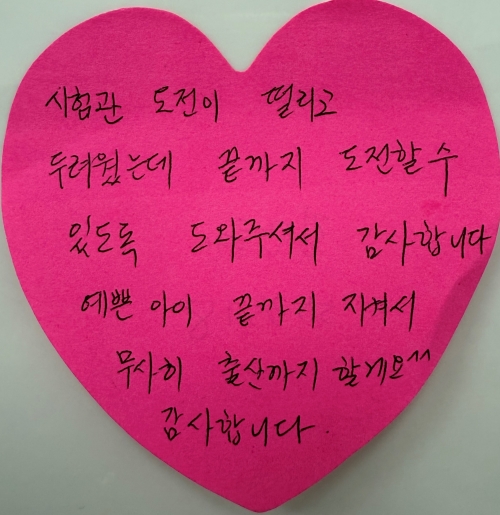 시험관 도전이 떨리고
두려웠는데 끝까지 도전할 수
있도록 도와주셔서 감사합니다
예쁜 아이 끝까지 지켜서
무사히 출산까지 할게요^^
감사합니다.